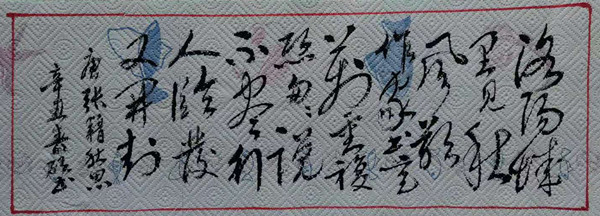 洛阳城
里见秋
风欲
作家书意
万重复
恐匆匆说
不尽行
人临发
又开封
唐张籍秋思
辛丑春